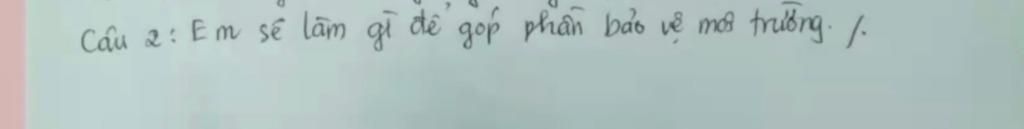 Câu 2: Em sẽ làm gì để góp phần bảo vệ môi trường. /.